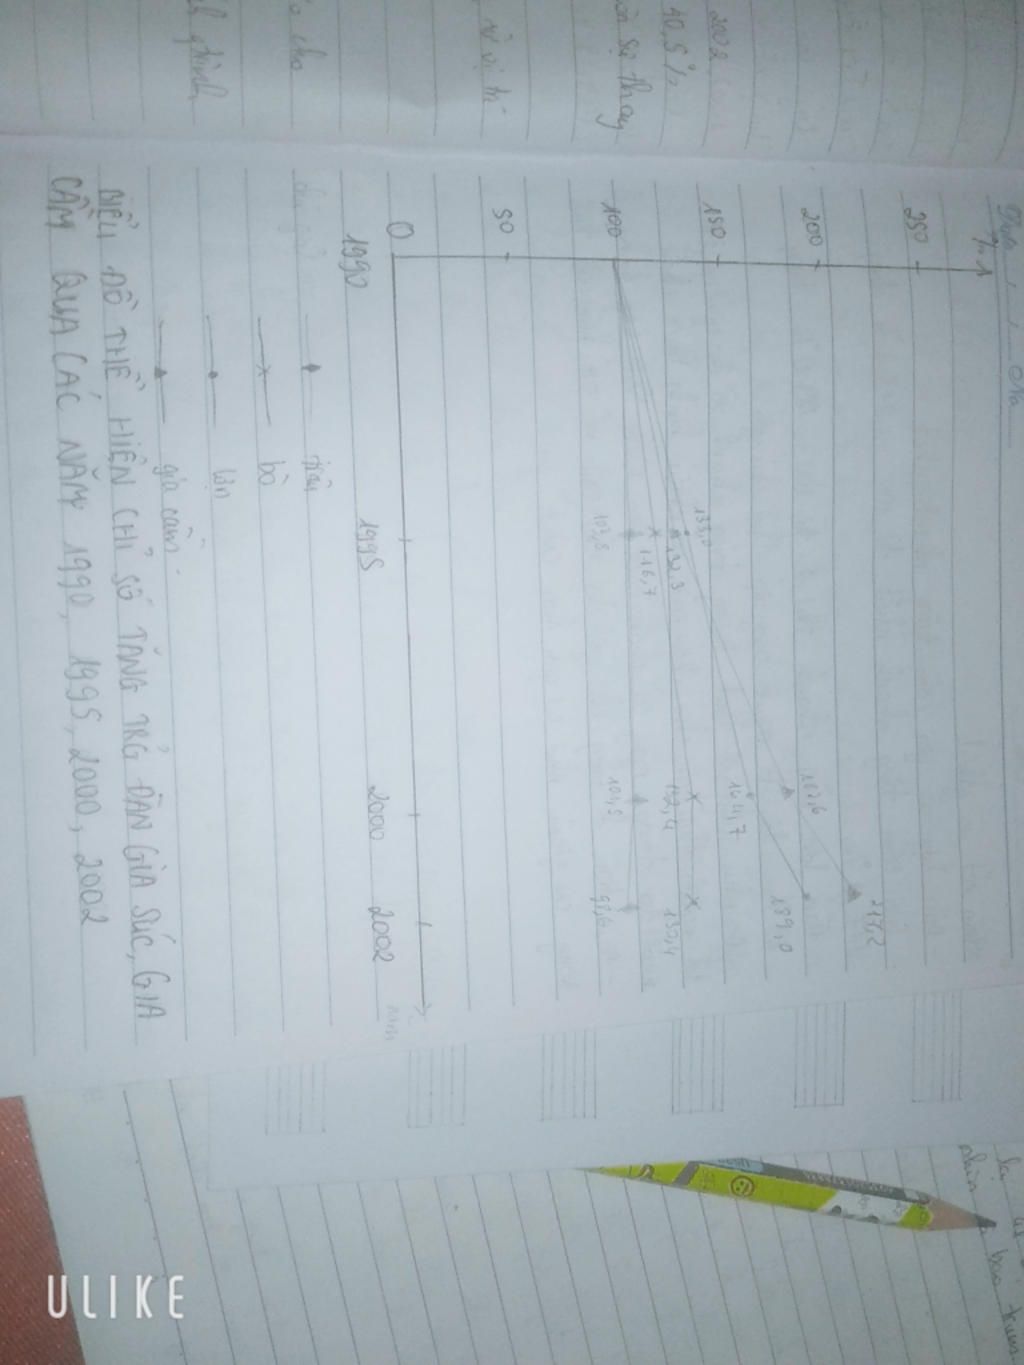 2002
40,5%
sự thay
vị trí
cho
%
250
200
150
100
50
0
1990
1995
2000
2002
năm
133,0
132,3
116,7
103,8
182,6
164,7
132,4
101,5
217,2
189,0
130,4
98,6
trâu
bò
lợn
gia cầm
BIỂU ĐỒ THỂ HIỆN CHỈ SỐ TĂNG TRG ĐÀN GIA SÚC, GIA
CẦM QUA CÁC NĂM 1990, 1995, 2000, 2002
ULIKE